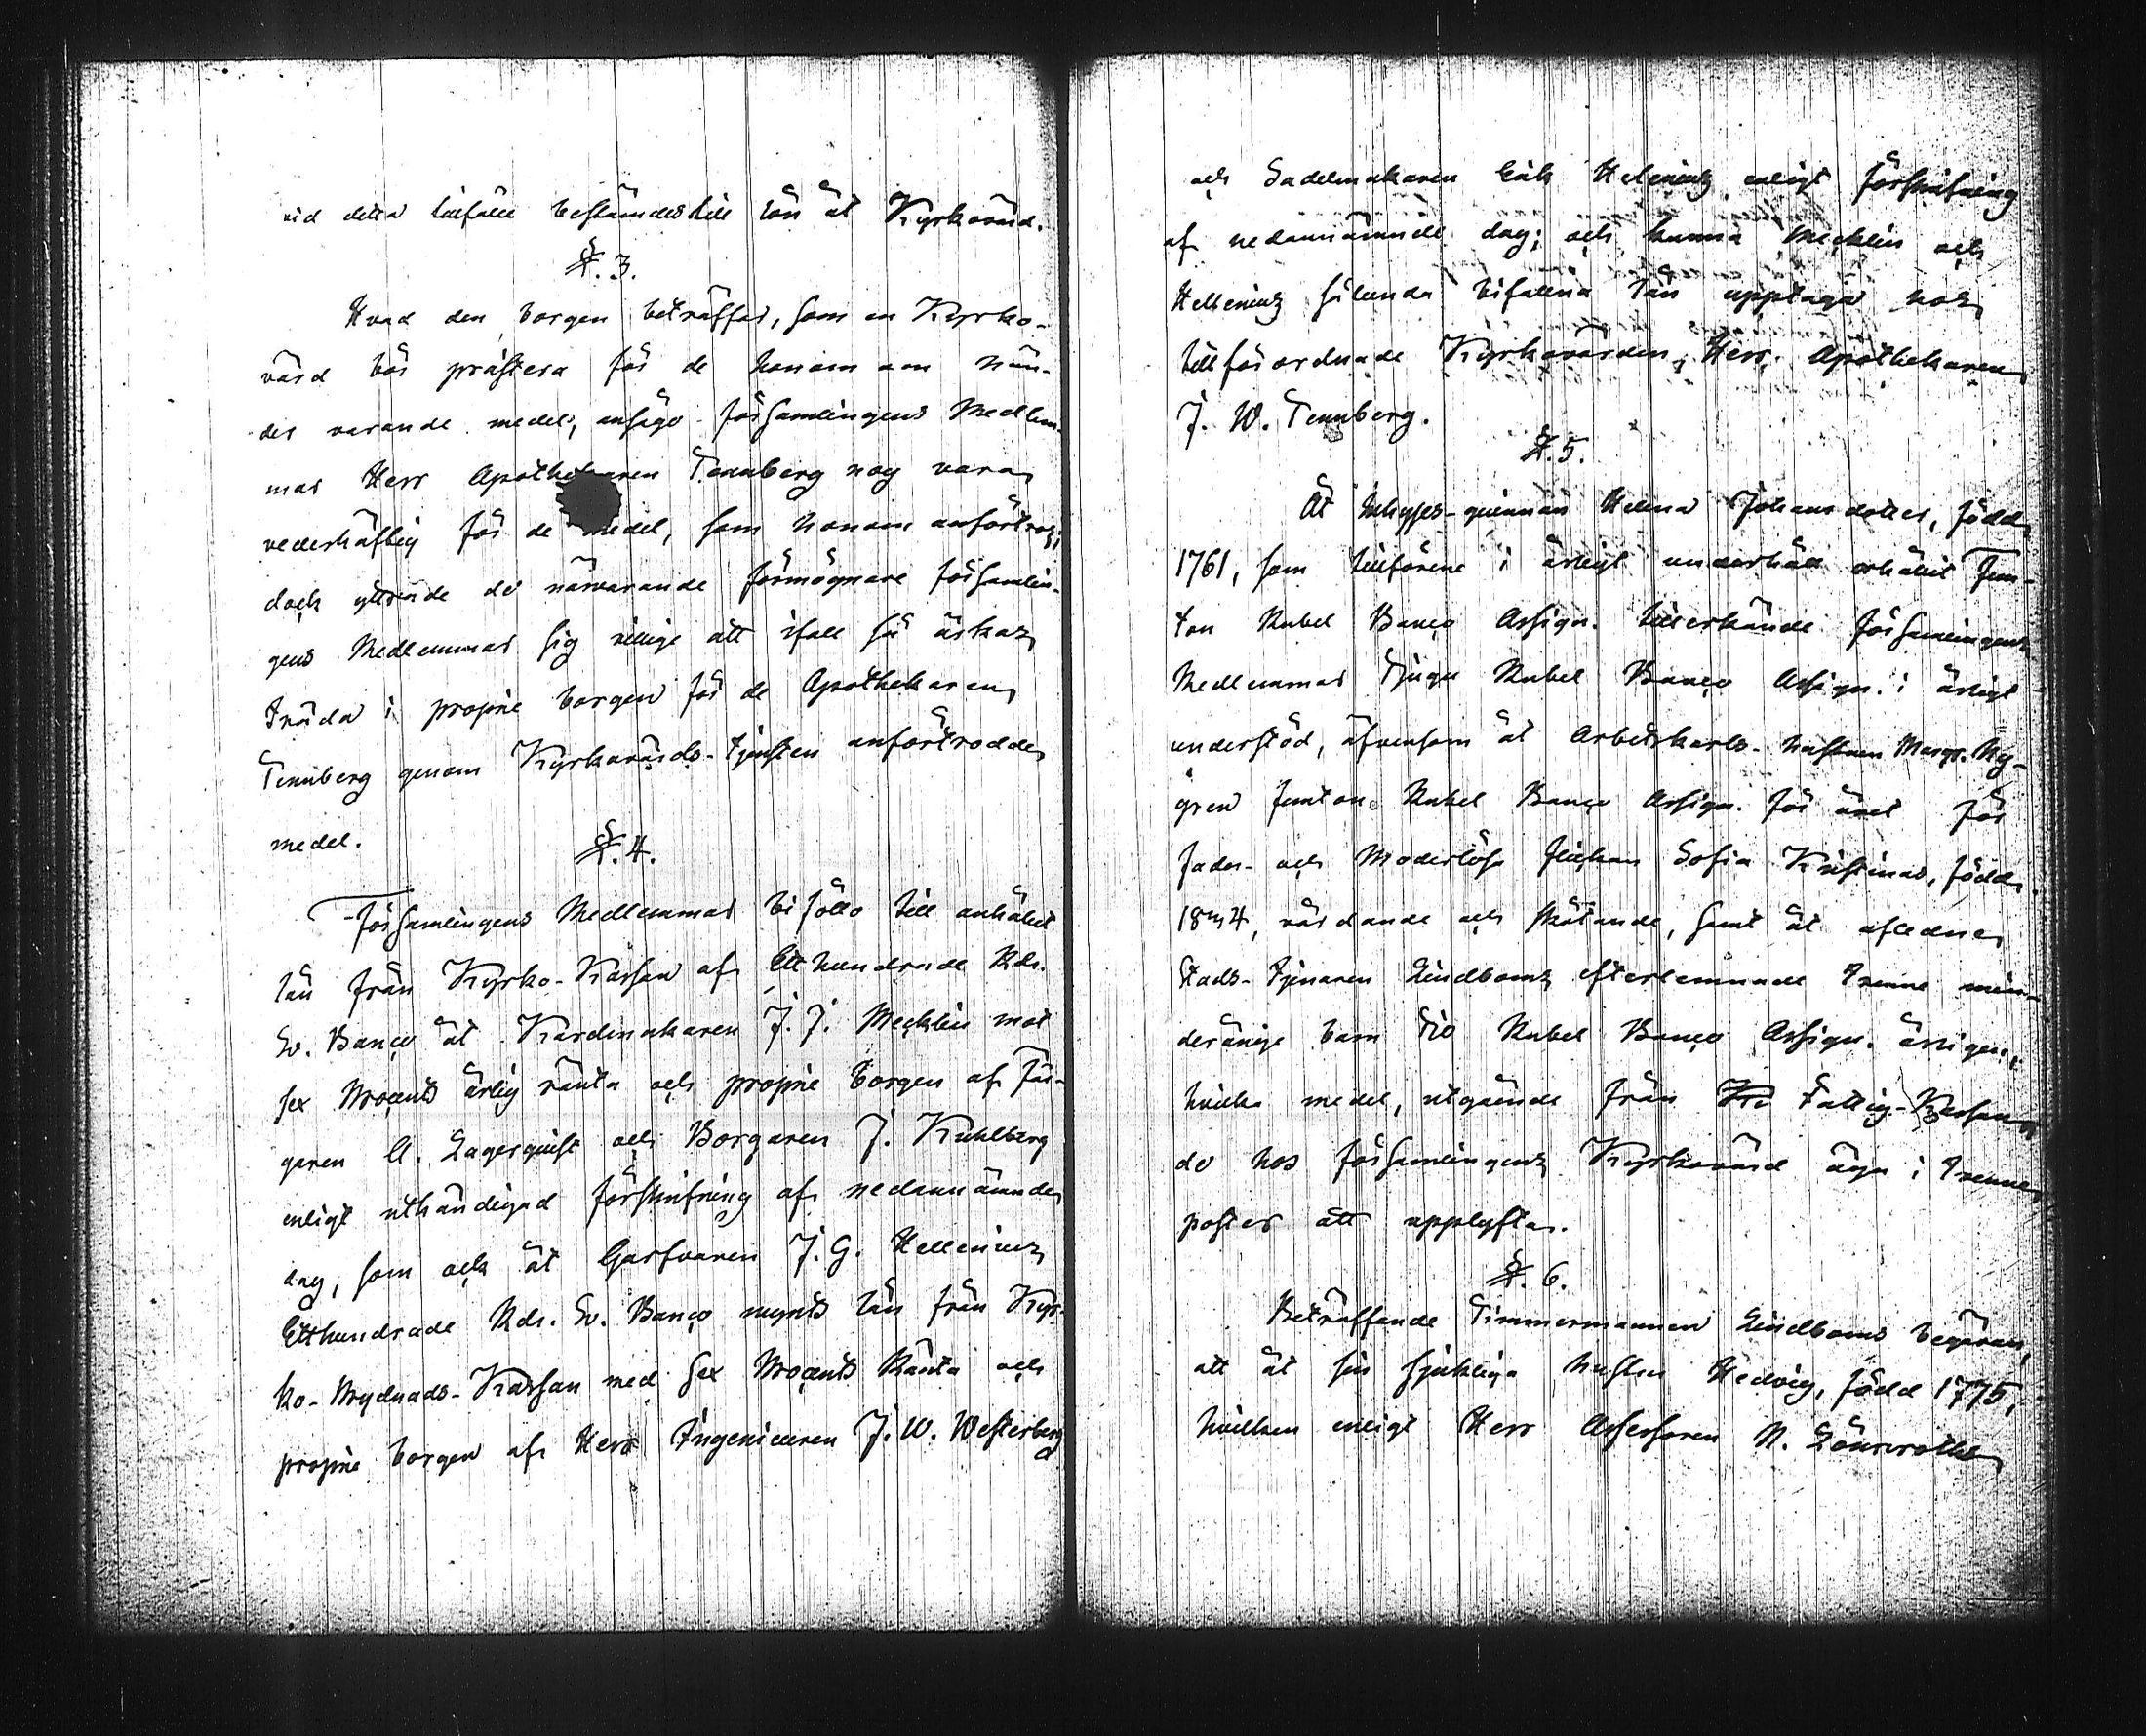 vid detta tillfälle bestämdes till lön åt Kyrkovärd.
§. 3.
Hvad den borgen beträffar, som en Kyrko-
värd bör prästera för de honom om hän-
der varande medel, ansågo församlingens Medlem-
mar Herr Apothekaren Tennberg nog vara
vederhäftig för de medel, som honom anförtros;
dock yttrade de närvarande förmögnare församlin-
gens Medlemmar sig villige att ifall så äskas,
träda i proprie borgen för de Apothekaren
Tennberg genom Kyrkovärds-tjensten anförtrodde
medel.
§. 4.
Församlingens Medlemmar biföllo till anhållit
lån från Kyrko-Kassan af Ett hundrade Rdr.
Sv. Banco åt Kardmakaren J. J. Mecklin mot
sex Procents årlig ränta och proprie borgen af Fär-
garen A. Lagerquist och Borgaren J. Kuhlberg
enligt uthändigad förskrifning af nedannämnde
dag, som ock åt Garfvaren J. G. Hellenius
Etthundrade Rdr. Sv. Banco mynts lån från Kyr-
ko-Prydnads-Kassan med sex Procents Ränta och
proprie borgen af Herr Ingenieuren J. W. Westerberg
och Sadelmakaren Erik Helenius enligt förskrifning
af nedannämnde dag; och kunna Mecklin och
Hellenius sålunda bifallna lån upptaga hos
tillförordnade Kyrkovärden, Herr Apothekaren
J. W. Tennberg.
§. 5.
Åt Inhyses-qvinnan Helena Johansdotter, född
1761, som tillförene i årligt underhåll erhållit Fem-
ton Rubel Banco Assign. tillerkände församlingens
Medlemmar Tjugu Rubel Banco Assign. i årligt
understöd, äfvensom åt Arbetskarls-hustrun Margr. Ny-
gren femton Rubel Banco Assign. för året för
fader- och moderlösa flickan Sofia Kristinas, född
1834, vårdande och skötande, samt åt aflednes
Stads-tjenaren Lindboms efterlemnade trenne min-
deråriga barn Tio Rubel Banco Assign. årligen,
hvilka medel, utgående från Fattig-Kassan,
de hos församlingens Kyrkovärd äga i trenne
poster att upplyfta.
§. 6.
Beträffande Timmermannen Lindboms begäran,
att åt sin sjukliga hustru Hedvig, född 1775,
hvilken enligt Herr Assessoren N. Lönnroths